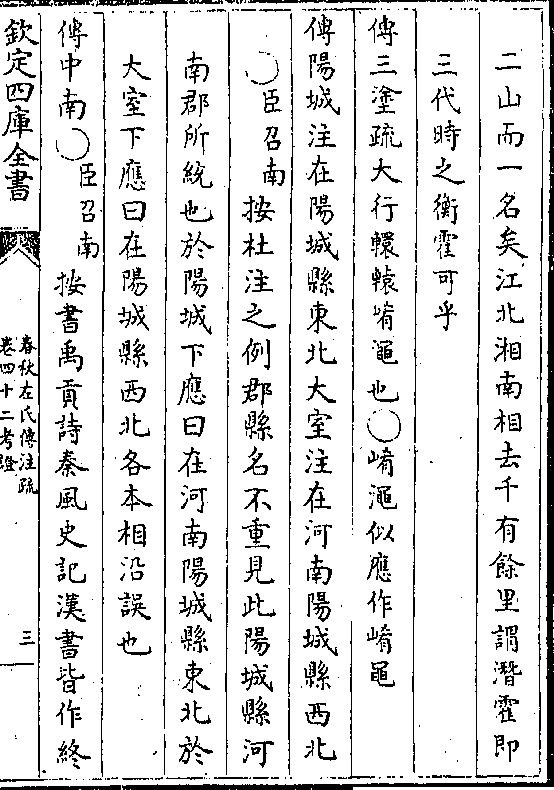 二山而一名矣江北湘南相去千有餘里謂潛霍即
三代時之衡霍可乎
傳三塗疏大行轘轅崤澠也〇崤澠似應作崤黽
傳陽城注在陽城縣東北大室注在河南陽城縣西北
〇臣召南按杜注之例郡縣名不重見此陽城縣河
南郡所統也於陽城下應曰在河南陽城縣東北於
大室下應曰在陽城縣西北各本相沿誤也
傳中南〇臣召南按書禹貢詩秦風史記漢書皆作終
欽定四庫全書
春秋左氏傳注疏
卷四十二考證
三